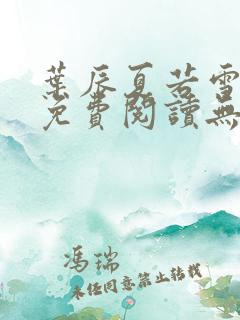 葉辰夏若雪
免費閱讀無
馮瑞
未經同意禁止轉載